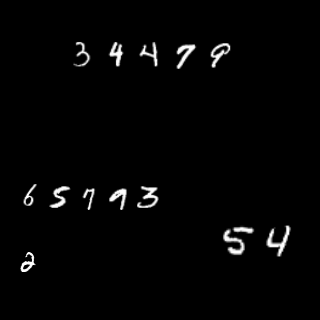 34479
65793
54
2